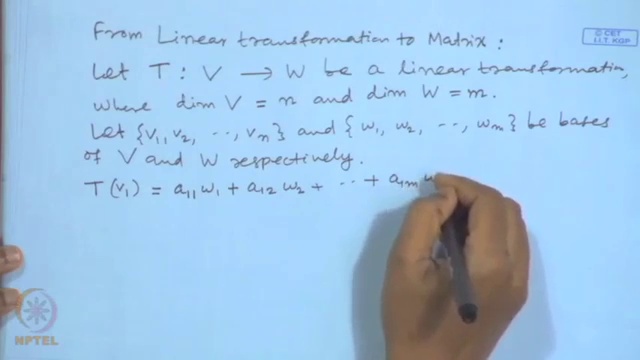 © CET
I.I.T. KGP
From Linear transformation to Matrix :
Let T : V → W be a linear transformation,
where dim V = n and dim W = m.
Let {v₁, v₂, ⋯, vₙ} and {w₁, w₂, ⋯, wₘ} be bases
of V and W respectively.
T(v₁) = a₁₁w₁ + a₁₂w₂ + ⋯ + a₁ₘ w
NPTEL